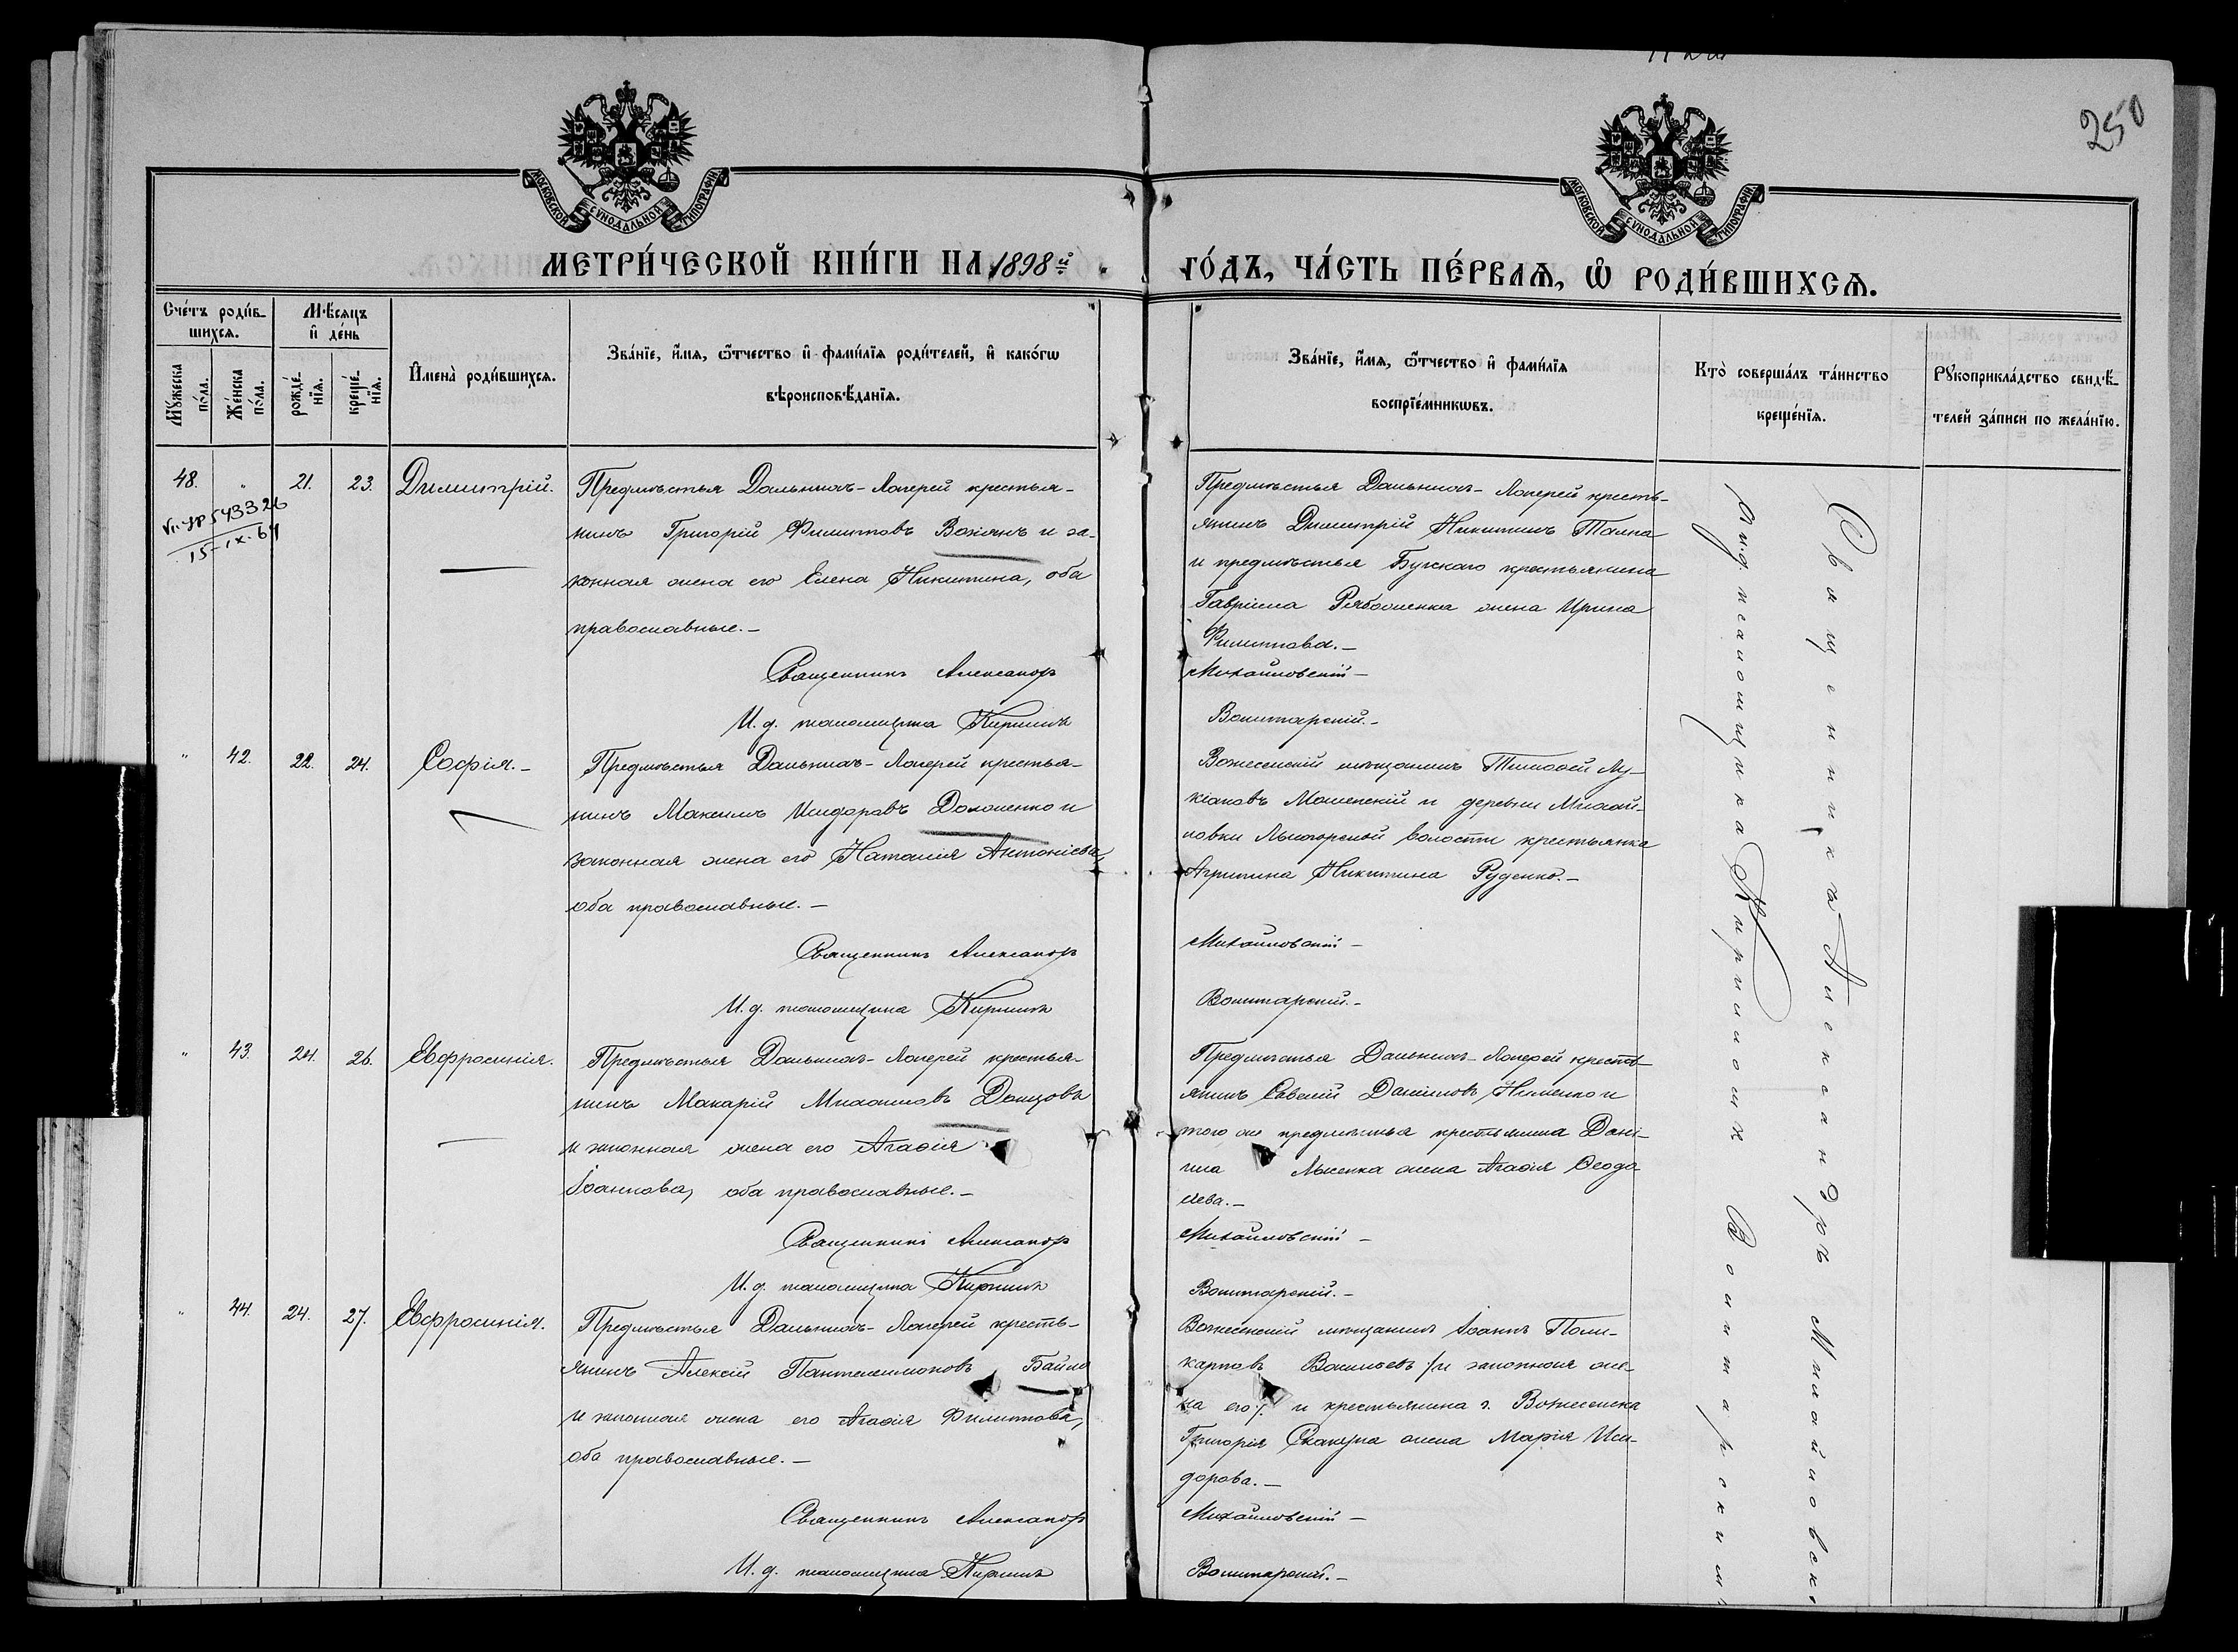 250
МОСКОВСКОЙ СУНОДАЛЬНОЙ ТИПОГРАФІИ
МОСКОВСКОЙ СУНОДАЛЬНОЙ ТИПОГРАФІИ
МЕТРИ́ЧЕСКОЙ КНИ́ГИ НА 1898й
ГО́ДЪ, ЧА́СТЬ ПЕ́РВАѦ, Ѿ РОДИ́ВШИХСѦ.
Сче́тъ роди́в-
шихсѧ.
Мѣ́сяцъ
и҆ де́нь
Мꙋ́жеска
по́ла.
Же́нска
по́ла.
рожде́-
нїѧ.
креще́-
нїѧ.
И҆мена̀ роди́вшихсѧ.
Зва́нїе, и҆́мѧ, ѻ҆́тчество и҆ фами́лїѧ роди́телей, и҆ како́гѡ
вѣроисповѣ́данїѧ.
Зва́нїе, и҆́мѧ, ѻ҆́тчество и҆ фами́лїѧ
воспрїе́мникѡвъ.
Кто̀ соверша́лъ та́инство
креще́нїѧ.
Рꙋкоприкла́дство свидѣ́-
телей за́писи по жела́нїю.
48. " 21. 23. Димитрій.
543326
15-IX-64
Предмѣстья Дальнихъ-Лагерей крестья-
нинъ Григорій Филиповъ Вожянъ и за-
конная жена его Елена Никитина, оба
православные.-
Священникъ Александръ
И. д. псаломщика Кириллъ
Предмѣстья Дальнихъ-Лагерей кресть-
янинъ Димитрій Никитинъ Талпа
и предмѣстья Бугскаго крестьянина
Гавріила Рябошенка жена Ирина
Филиппова.-
Михайловскій-
Волитарскій.-
" 42. 22. 24. Софія.-
Предмѣстья Дальнихъ-Лагерей крестья-
нинъ Максимъ Исидоровъ Доломенко и
законная жена его Наталія Антоніева,
оба православные.-
Священникъ Александръ
И. д. псаломщика Кириллъ
Вознесенскій мѣщанинъ Тимоѳей Лу-
кіановъ и деревни Михай-
ловки волости крестьянка
Агрипина Никитина Руденко.-
Михайловскій-
Волитарскій.-
" 43. 24. 26. Евфросинія.
Предмѣстья Дальнихъ-Лагерей крестья-
нинъ Макарій Михаиловъ Донцовъ
и законная жена его Агаѳія
Іоаннова, оба православные.-
Священникъ Александръ
И. д. псаломщика Кириллъ
Предмѣстья Дальнихъ-Лагерей кресть-
янинъ Савелій Даниловъ и
того же предмѣстья крестьянина Дані-
ила Лысенка жена Агаѳія Ѳеодо
сіева.-
Михайловскій-
Волитарскій.-
" 44. 24. 27. Евфросинія.
Предмѣстья Дальнихъ-Лагерей кресть-
янинъ Алексій Пантелеимоновъ Байло
и законная жена его Агаѳія Филиппова,
оба православные.-
Священникъ Александръ
И. д. псаломщика Кириллъ
Вознесенскій мѣщанинъ Іоаннъ Поли-
карповъ Васильевъ /и законная же-
на его/. и крестьянина г. Вознесенска
Григорія Скакуна жена Марія Иси-
дорова.-
Михайловскій-
Волитарскій.-
Священникъ Александръ Михайловскі
псаломщика Кириллъ Волитарскій